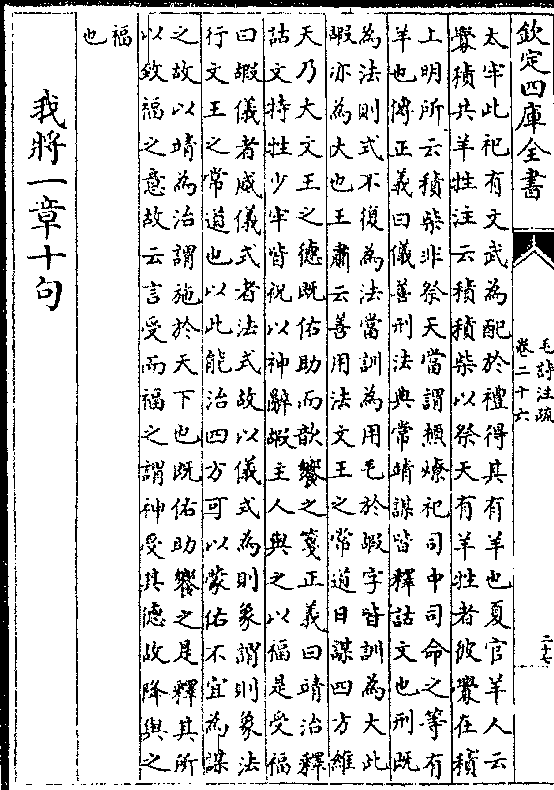 欽定四庫全書
毛詩注疏
卷二十六
二十七
太牢此祀有文武為配於禮得其有羊也夏官羊人云
釁積共羊牲注云積積柴以祭天有羊牲者彼釁在積
上明所云積柴非祭天當謂槱燎祀司中司命之等有
羊也傳正義曰儀善刑法典常靖謀皆釋詁文也刑既
為法則式不復為法當訓為用毛於嘏字皆訓為大此
嘏亦為大也王肅云善用法文王之常道日謀四方維
天乃大文王之德既佑助而歆饗之箋正義曰靖治釋
詁文特牲少牢皆祝以神辭嘏主人與之以福是受福
曰嘏儀者威儀式者法式故以儀式為則象謂則象法
行文王之常道也以此能治四方可以蒙佑不宜為謀
之故以靖為治謂施於天下也既佑助饗之是釋其所
以致福之意故云言受而福之謂神受其德故降與之
福
也
我將一章十句